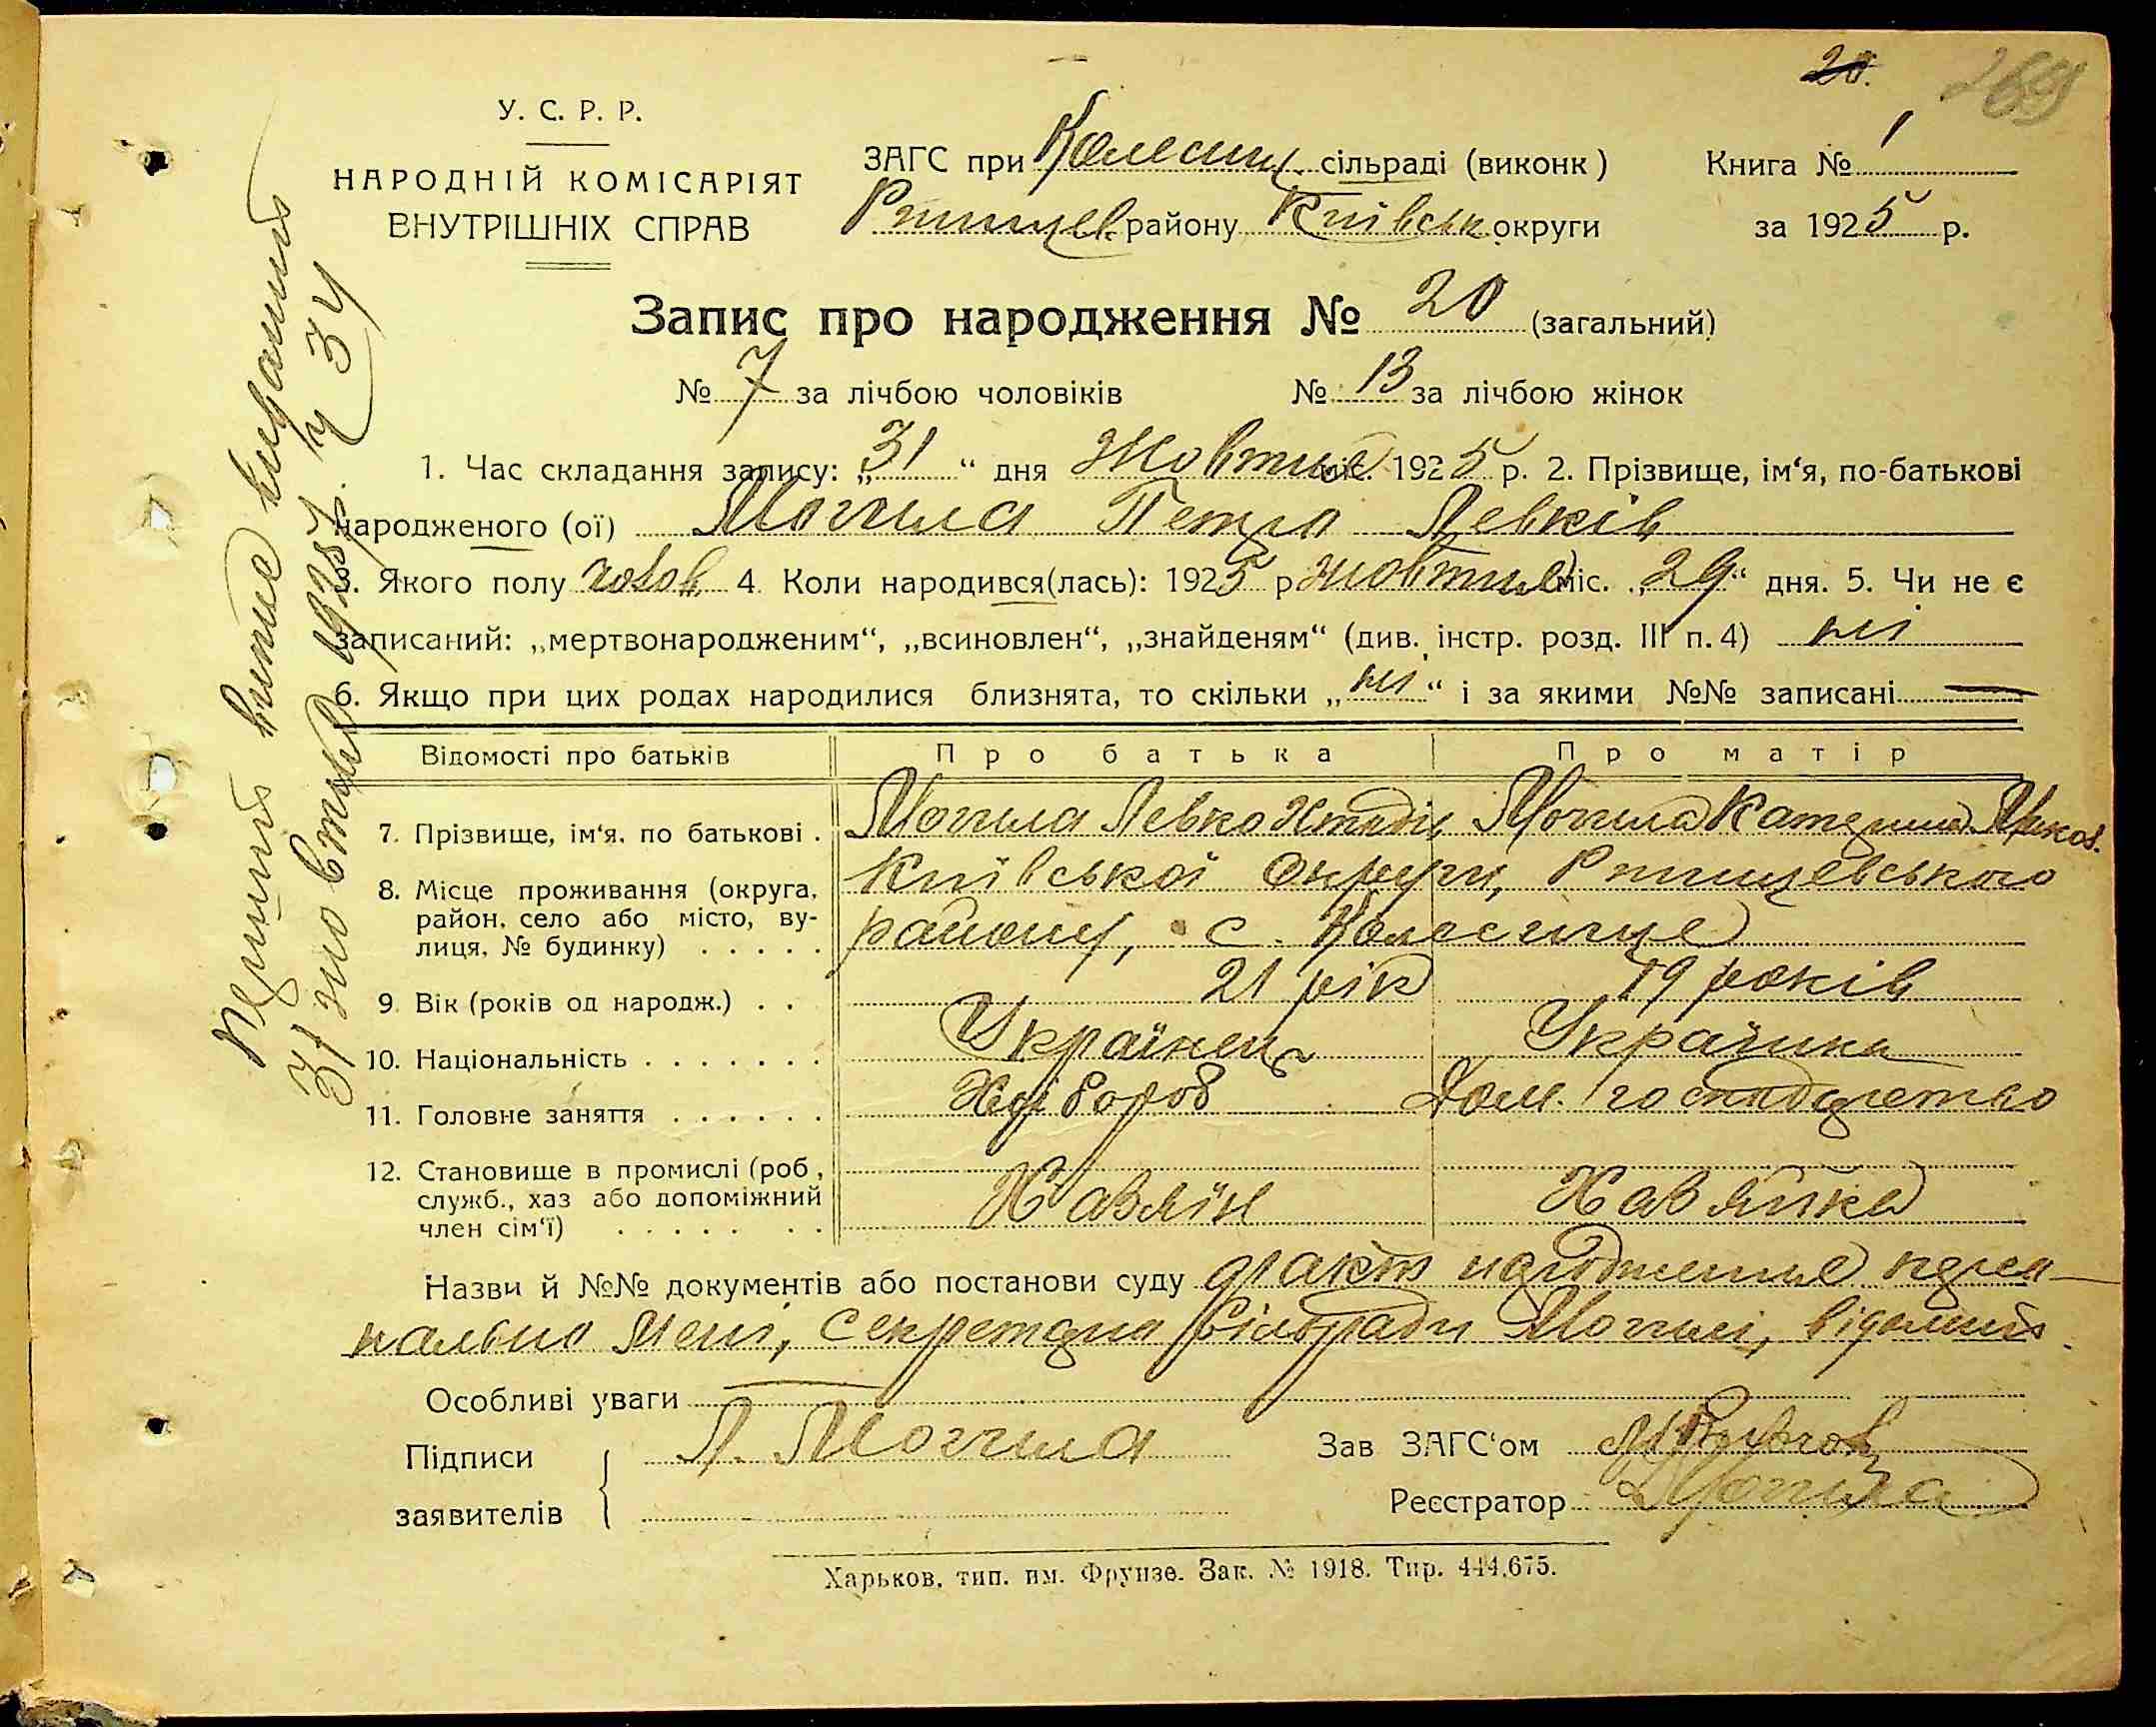 20.
269
У. С. Р. Р.
НАРОДНІЙ КОМІСАРІЯТ
ВНУТРІШНІХ СПРАВ
ЗАГС при Колесищ. сільраді (виконк)
Книга № 1
Ртищев. району Київськ. округи
за 1925 р.
Запис про народження № 20 (загальний)
№ 7 за лічбою чоловіків № 13 за лічбою жінок
1. Час складання запису: „31“ дня Жовтня міс. 1925 р. 2. Прізвище, ім‘я, по-батькові
народженого (ої) Могила Петро Левків
3. Якого полу чолов. 4. Коли народився(лась): 1925 р жовтня міс. „29“ дня. 5. Чи не є
записаний: „мертвонародженим“, „всиновлен“, „знайденям“ (див. інстр. розд. III п. 4) ні
6. Якщо при цих родах народилися близнята, то скільки „ні“ і за якими №№ записані —
Відомості про батьків
Про батька
Про матір
7. Прізвище, ім‘я, по батькові .
Могила Левко
Могила Катерина
8. Місце проживання (округа, район, село або місто, вулиця, № будинку) . . . . .
Київської Округи, Ртищевського
району, с. Колесище
9. Вік (років од народж.) . .
21 рік
19 років
10. Національність . . . . . . .
Українець
Українка
11. Головне заняття . . . . . .
Хлібороб
Дом. господарство
12. Становище в промислі (роб., служб., хаз або допоміжний член сім‘ї) . . . . . . .
Хазяїн
Хазяйка
Назви й №№ документів або постанови суду факт народження персо-
нально мені, секретарю Сільради Могилі, відомий
Особливі уваги —
Підписи
заявителів
Л. Могила
Зав ЗАГС‘ом
Реєстратор Могила
Харьков, тип. им. Фрунзе. Зак. № 1918. Тир. 444.675.
31 жовтня 1925 р. Ч 34